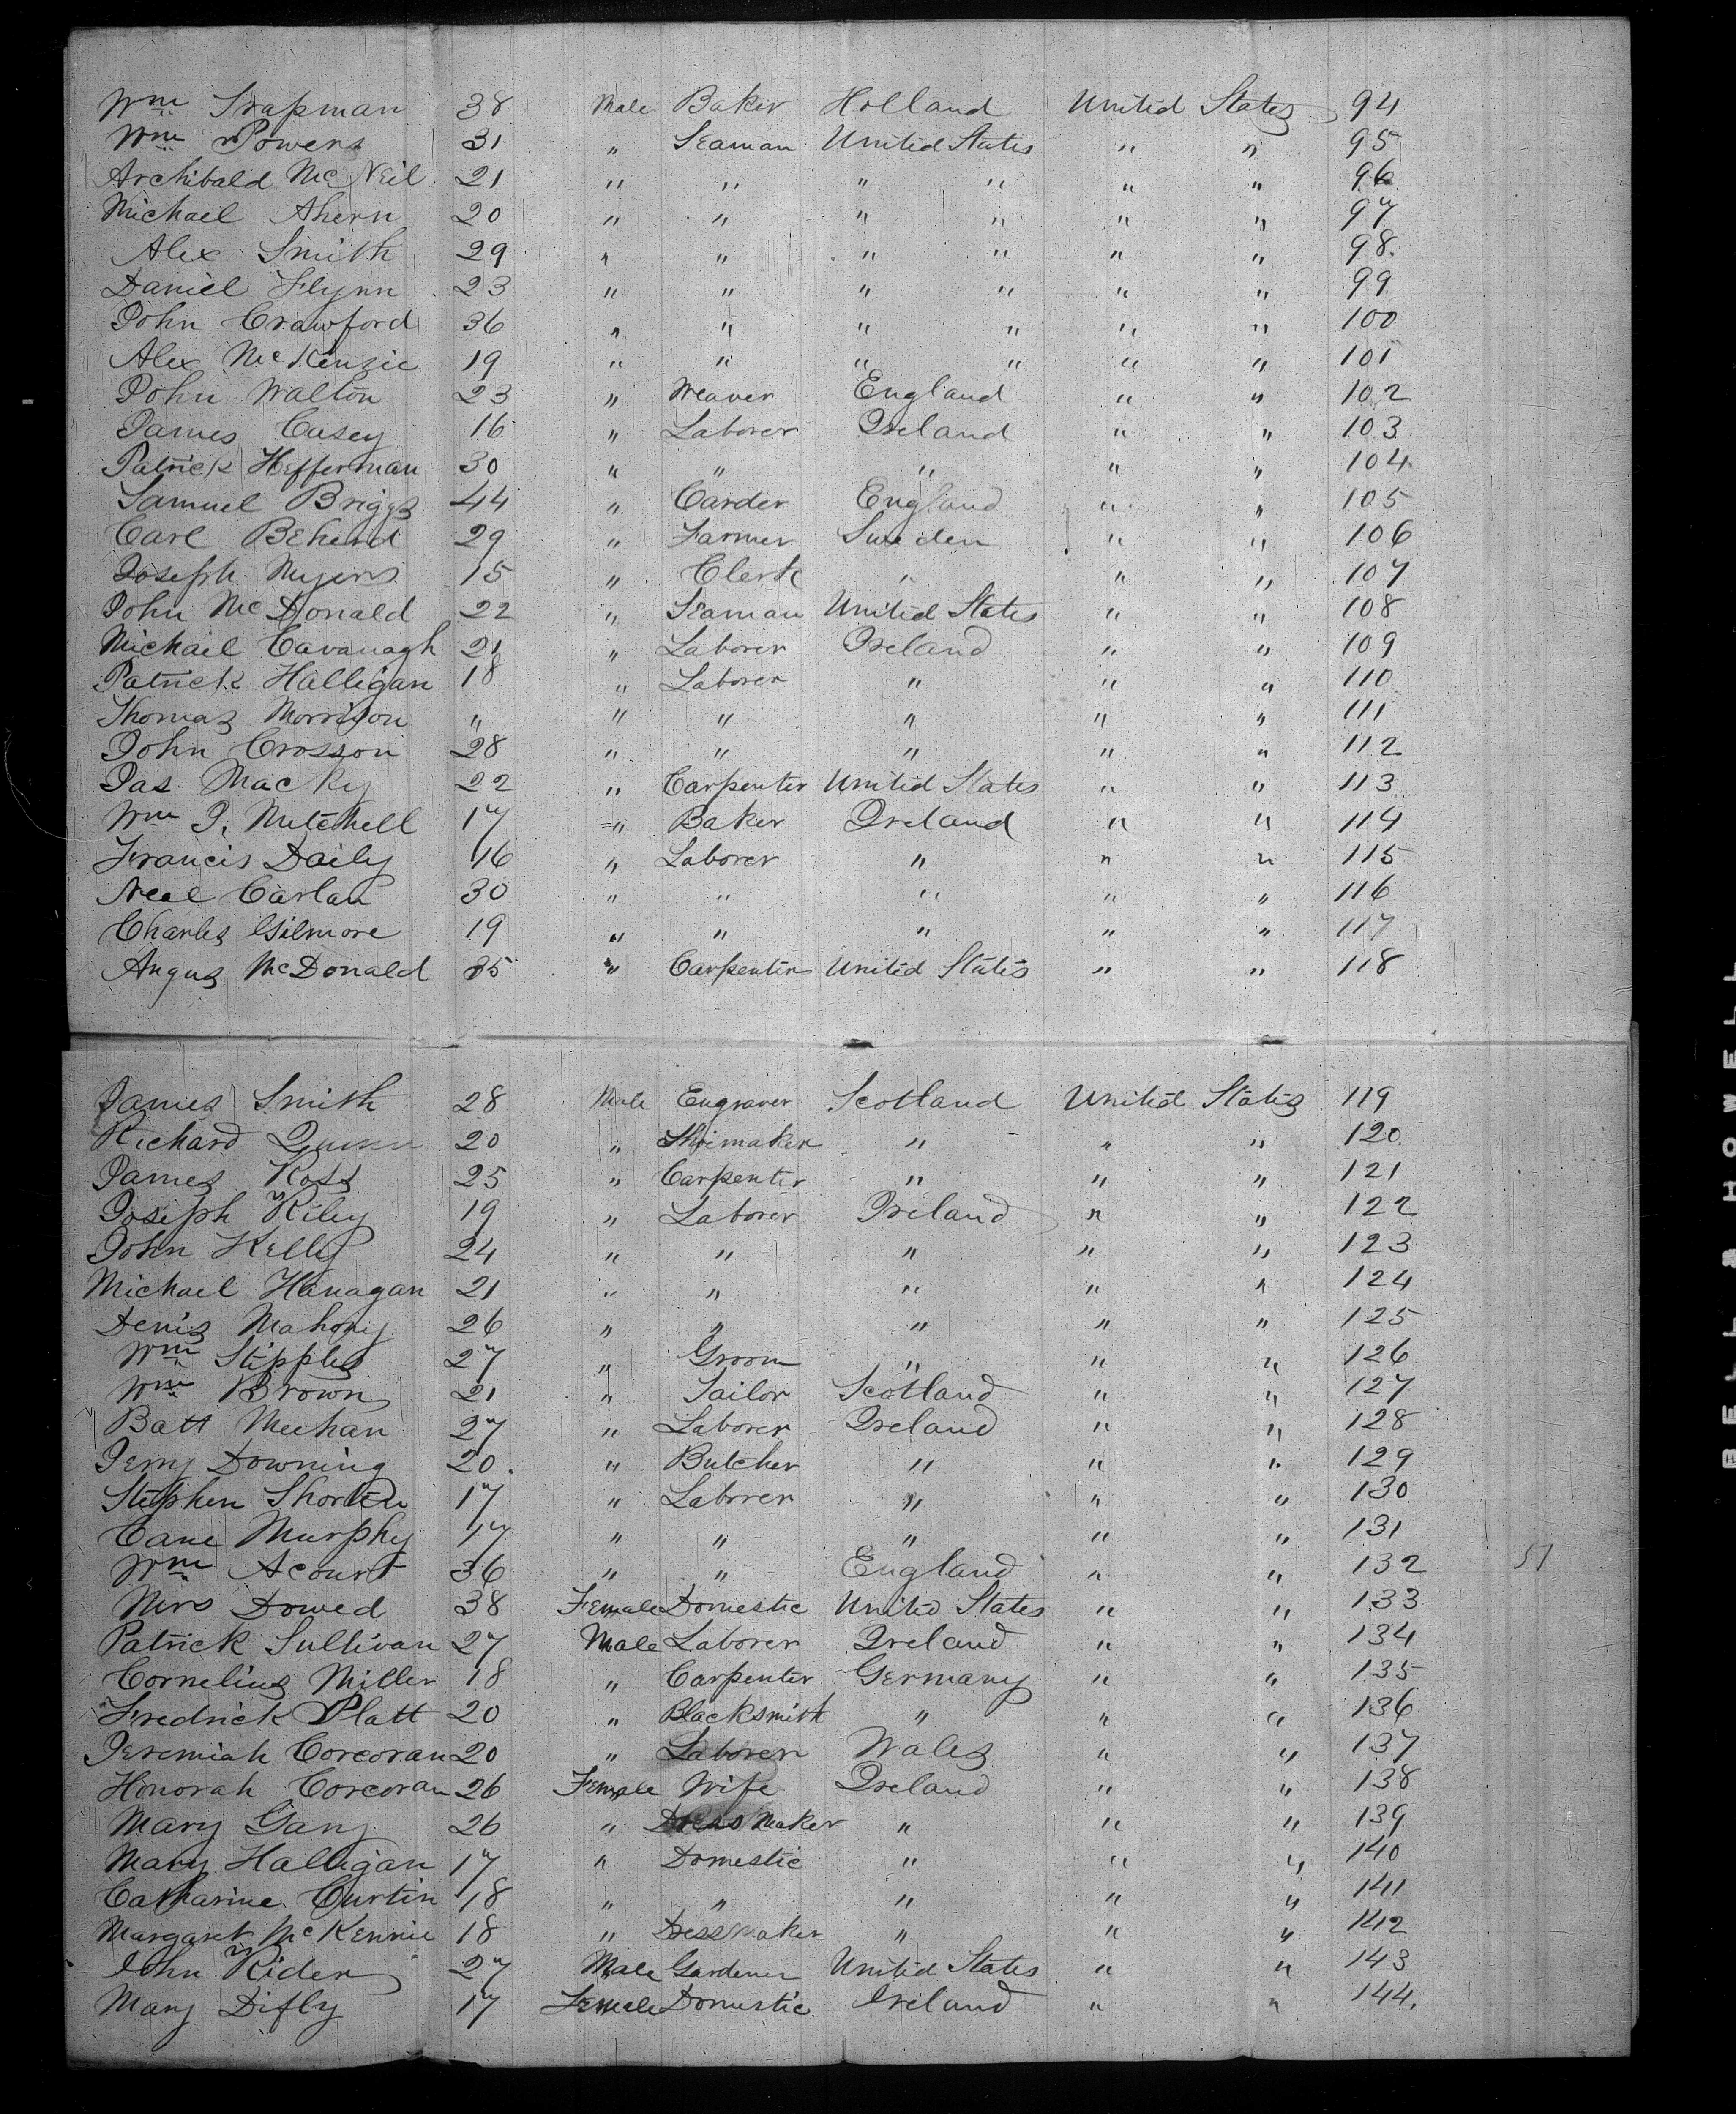 Wm Trapman 38 Male Baker Holland United States 94
Wm Powers 31 " Seaman United States " " 95
Archibald McNeil 21 " " " " " " 96
Michael Ahern 20 " " " " " " 97
Alex Smith 29 " " " " " " 98.
Daniel Flynn 23 " " " " " " 99
John Crawford 36 " " " " " " 100
Alex McKenzie 19 " " " " " " 101
John Walton 23 " Weaver England " " 102
James Casey 16 " Laborer Ireland " " 103
Patrick Hefferman 30 " " " " " 104
Samuel Briggs 44 " Carder England " " 105
Carl 29 " Farmer Sweden " " 106
Joseph Myers 15 " Clerk " " " 107
John McDonald 22 " Seaman United States " " 108
Michael Cavanagh 21 " Laborer Ireland " " 109
Patrick Halligan 18 " Laborer " " " 110
Thomas Morrison " " " " " " 111
John Crosson 28 " " " " " 112
Jas. Macky 22 " Carpenter United States " " 113
Wm J. Mitchell 17 " Baker Ireland " " 114
Francis Daily 16 " Laborer " " " 115
Neal Carlan 30 " " " " " 116
Charles Gilmore 19 " " " " " 117
Angus McDonald 35 " Carpenter United States " " 118
James Smith 28 Male Engraver Scotland United States 119
Richard Quinn 20 " Shoemaker " " " 120
James Ross 25 " Carpenter " " " 121
Joseph Riley 19 " Laborer Ireland " " 122
John Kelly 24 " " " " " 123
Michael Hanagan 21 " " " " " 124
Denis Mahony 26 " " " " " 125
Wm Stipples 27 " Groom " " " 126
Wm Brown 21 " Tailor Scotland " " 127
Batt Meehan 27 " Laborer Ireland " " 128
Jerry Downing 20. " Butcher " " " 129
Stephen Shorten 17 " Laborer " " " 130
Cane Murphy 17 " " " " " 131
Wm Acourt 36 " " England " " 132 51
Mrs Dowed 38 Female Domestic United States " " 133
Patrick Sullivan 27 Male Laborer Ireland " " 134
Cornelius Miller 18 " Carpenter Germany " " 135
Fredrick Platt 20 " Blacksmith " " " 136
Jeremiah Corcoran 20 " Laborer Wales " " 137
Honorah Corcoran 26 Female Wife Ireland " " 138
Mary Gany 26 " Dress Maker " " " 139
Mary Halligan 17 " Domestic " " " 140
Catharine Curtin 18 " " " " " 141
Margaret McKennie 18 " Dressmaker " " " 142
John Rider 27 Male Gardener United States " " 143
Mary Difly 17 Female Domestic Ireland " " 144.
BELL & HOWELL